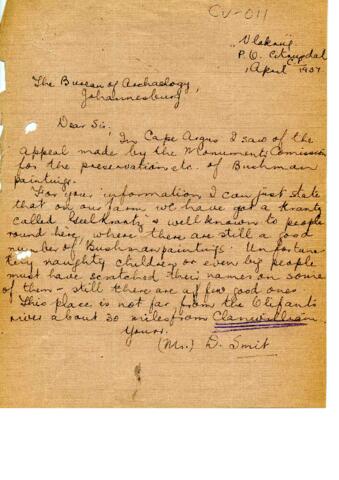 CV-011
"Vlakrug
P.O. Citrusdal
1 April 1937
The Bureau of Archaeology,
Johannesburg
Dear Sir,
In Cape Argus I saw of the
appeal made by the Monuments Comission
for the preservation etc. of Bushman
paintings.
For your information I can just state
that on our farm we have got a krantz
called "Geelkrantz" & well known to people
round here, where there are still a good
number of Bushmanpaintings. Unfortuna-
tely naughty children or even big people
must have scratched their names on some
of them - still there are a few good ones.
This place is not far from the Olifants
river about 30 miles from Clanwilliam.
Yours.
(Mr.) D. Smit